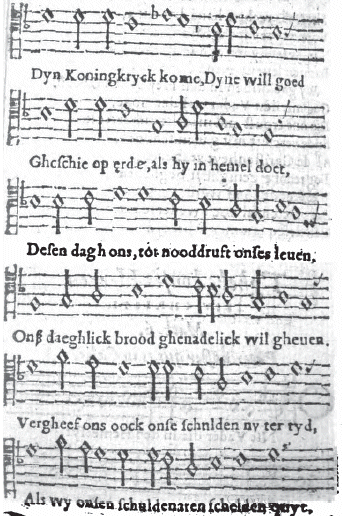 Dyn Koningkryck kome, Dyne will goed
Gheschie op erde, als hy in hemel doet,
Desen dagh ons, tot nooddruft onses leuen,
Onß daeghlick brood ghenadelick wil gheuen.
Vergheef ons oock onse schnlden nv ter tyd,
Als wy onsen schuldenaren schelden quyt.